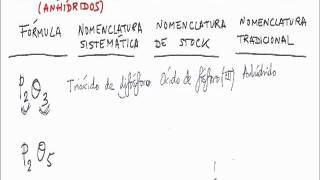 (ANHÍDRIDOS)
FÓRMULA NOMENCLATURA SISTEMÁTICA NOMENCLATURA DE STOCK NOMENCLATURA TRADICIONAL
P2O3 Trióxido de difósforo Óxido de fósforo (III) Anhídrido
P2O5